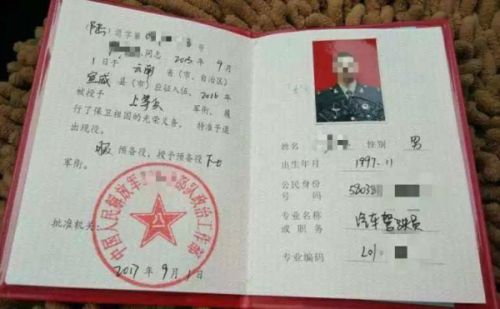 (陆) 退字第 09 号
同志 2015 年 9 月
1 日于 云南 省（市、自治区）
宣威 县（市）应征入伍，2016 年
被授予 上等兵 军衔，履
行了保卫祖国的光荣义务，特准予退
出现役。
服 预备役，授予预备役 下士
军衔。
中国人民解放军 部队政治工作部
批准机关：
2017 年 9 月 1 日
姓名 性别 男
出生年月 1997.11
公民身份
号码 53038
专业名称
或职务 汽车驾驶员
专业编码 201